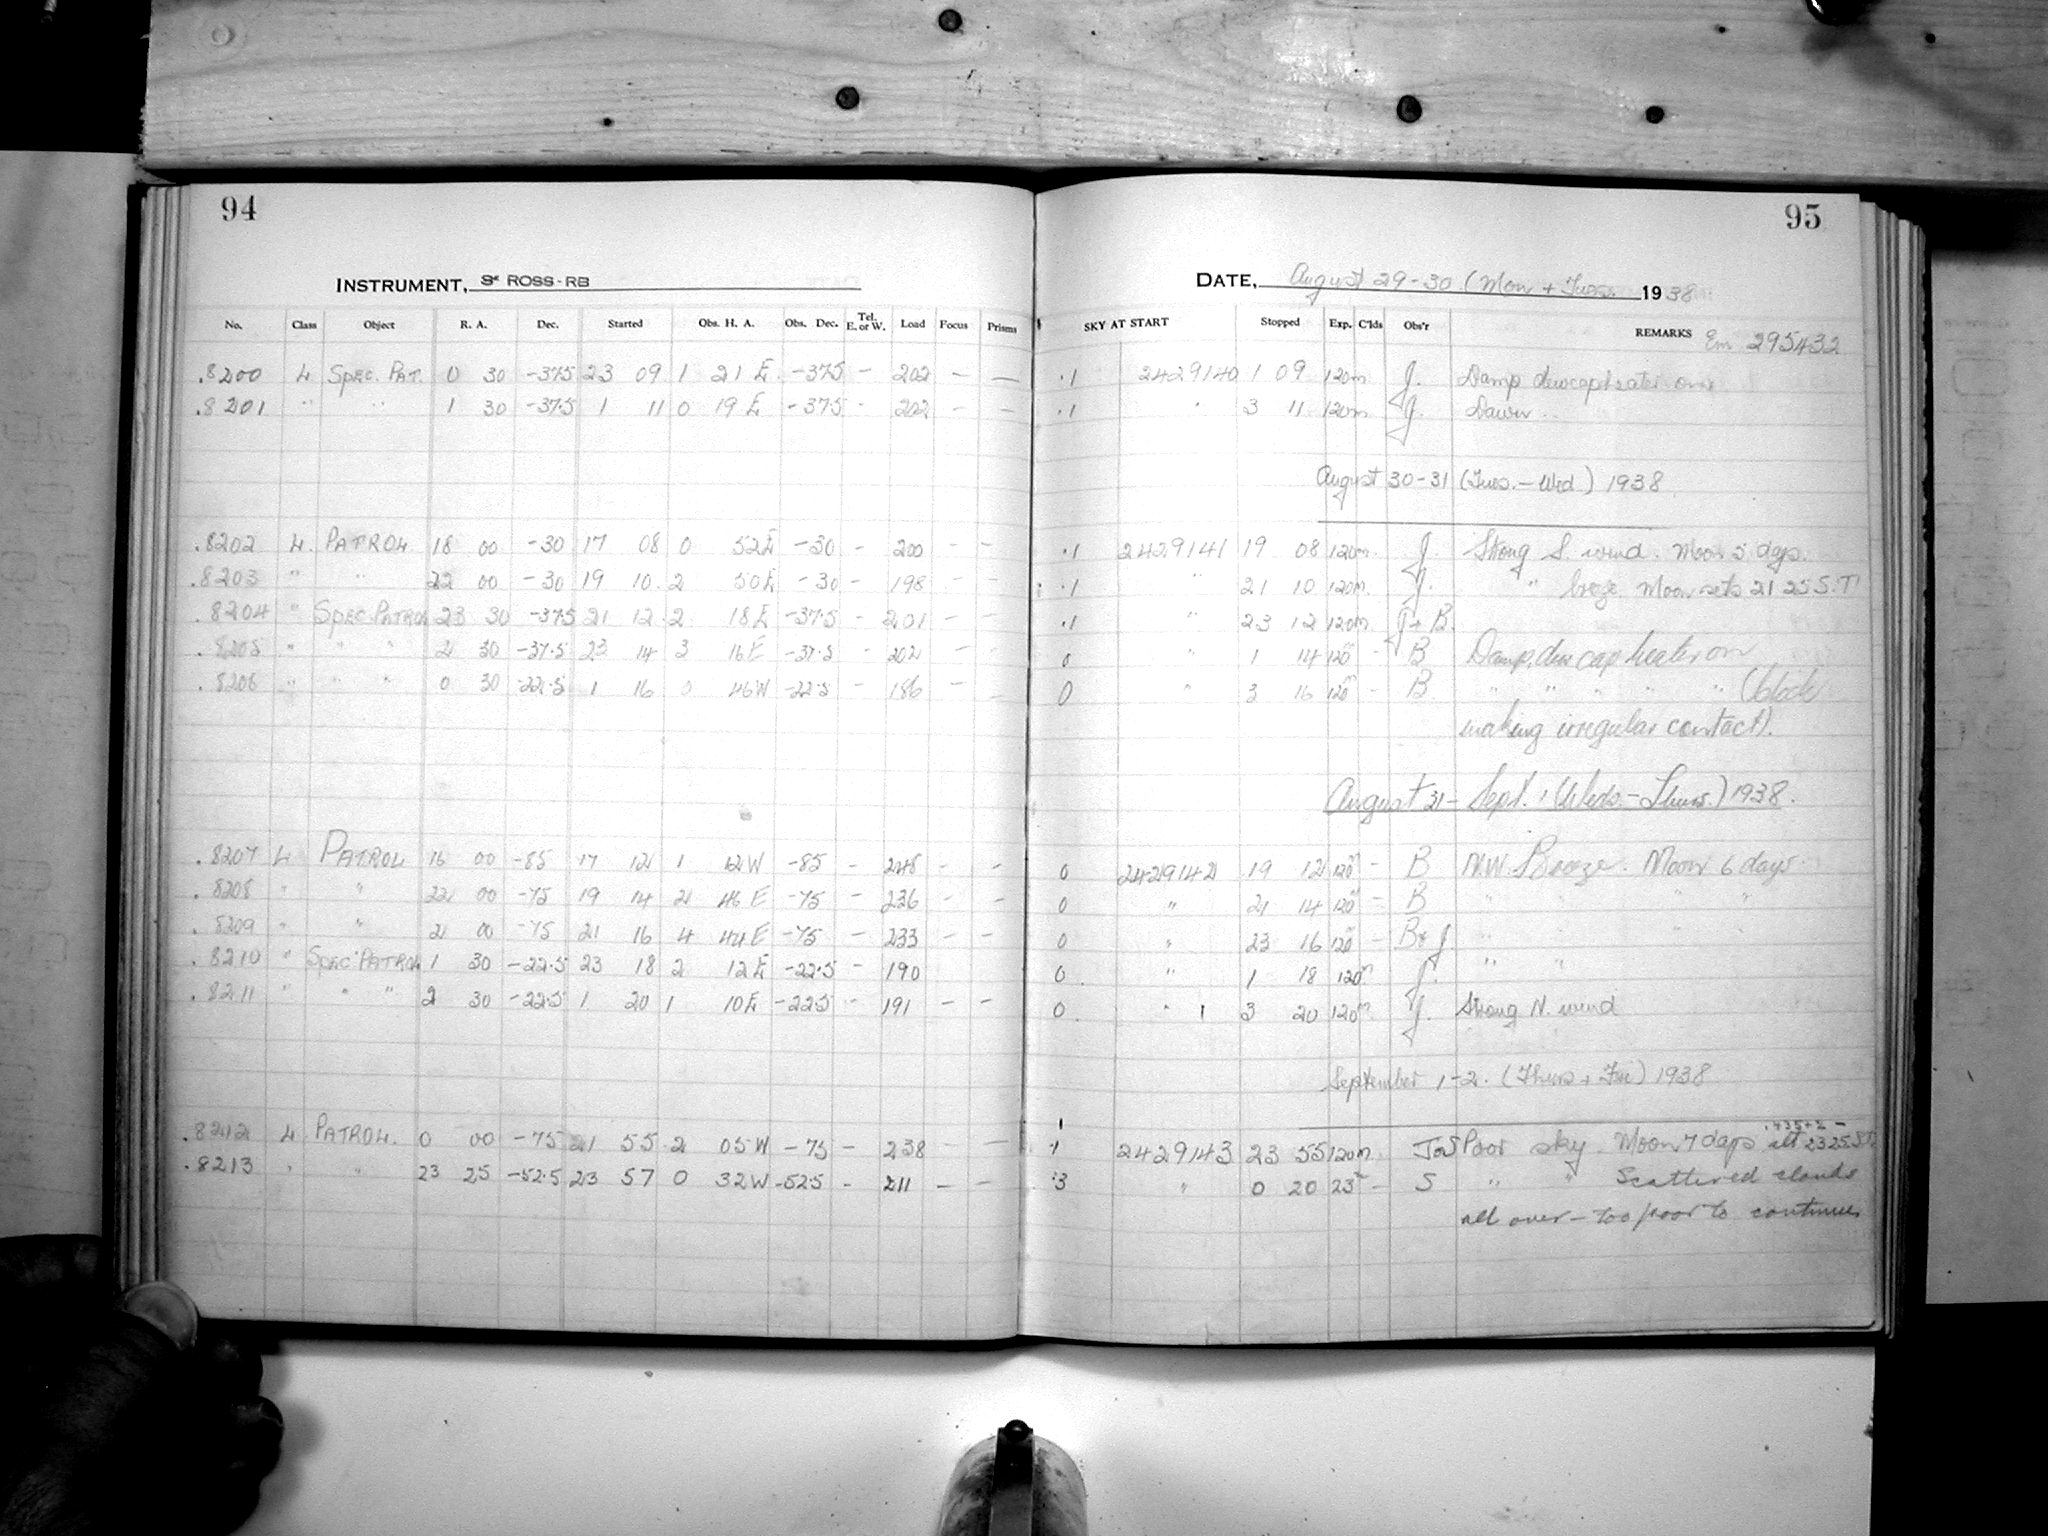 94
INSTRUMENT, Sx ROSS-RB
No. Class Object R. A. Dec. Started Obs. H. A. Obs. Dec. Tel. E. or W. Load Focus Prisms
.8200 L Spec. Pat. 0 30 -37.5 23 09 1 21 E -37.5 - 202 - -
.8201 " " 1 30 -37.5 1 11 0 19 E -37.5 - 202 - -
.8202 L. PATROL 18 00 -30 17 08 0 52 E -30 - 200 - -
.8203 " " 22 00 -30 19 10 2 50 E -30 - 198 - -
.8204 " Spec. PATROL 23 30 -37.5 21 12 2 18 E -37.5 - 201 - -
.8205 " " " 2 30 -37.5 23 14 3 16 E -37.5 - 202 - -
.8206 " " " 0 30 -22.5 1 16 0 46 W -22.5 - 186 - -
.8207 L PATROL 16 00 -85 17 12 1 12 W -85 - 248 - -
.8208 " " 22 00 -75 19 14 2 46 E -75 - 236 - -
.8209 " " 2 00 -75 21 16 4 44 E -75 - 233 - -
.8210 " Spec. PATROL 1 30 -22.5 23 18 2 12 E -22.5 - 190
.8211 " " " 2 30 -22.5 1 20 1 10 E -22.5 - 191 - -
.8212 L PATROL. 0 00 -75 21 55 2 05 W -75 - 238 - -
.8213 " " 23 25 -52.5 23 57 0 32 W -52.5 - 211 - -
95
DATE, August 29-30 (Mon + Tues. 1938
SKY AT START Stopped Exp. C'lds Obs'r REMARKS Em 295432
.1 2429140 1 09 120m J. Damp dewcap heater on
.1 " 3 11 120m J. Dawn
August 30-31 (Tues.-Wed.) 1938
.1 2429141 19 08 120m J. Strong S. wind. Moon 5 days.
.1 " 21 10 120m J. " breeze Moon sets 21 25 S.T.
.1 " 23 12 120m J + B.
0 " 1 14 120m - B Damp, dew cap heater on
0 " 3 16 120m - B " " " " " (clock
making irregular contact).
August 31 - Sept. 1 (Weds.-Thurs.) 1938.
0 2429142 19 12 120m - B N.W. Breeze. Moon 6 days.
0 " 21 14 120m - B " " " "
0 " 23 16 120m - B & J " " "
0 " 1 18 120m J. " "
0. " 1 3 20 120m J. Strong N. wind
September 1-2. (Thurs + Fri) 1938
.1 2429143 23 55 120m J+S Poor sky. Moon 7 days alt 2325 S.T.
.3 " 0 20 23m - S " " Scattered clouds
all over - too poor to continue